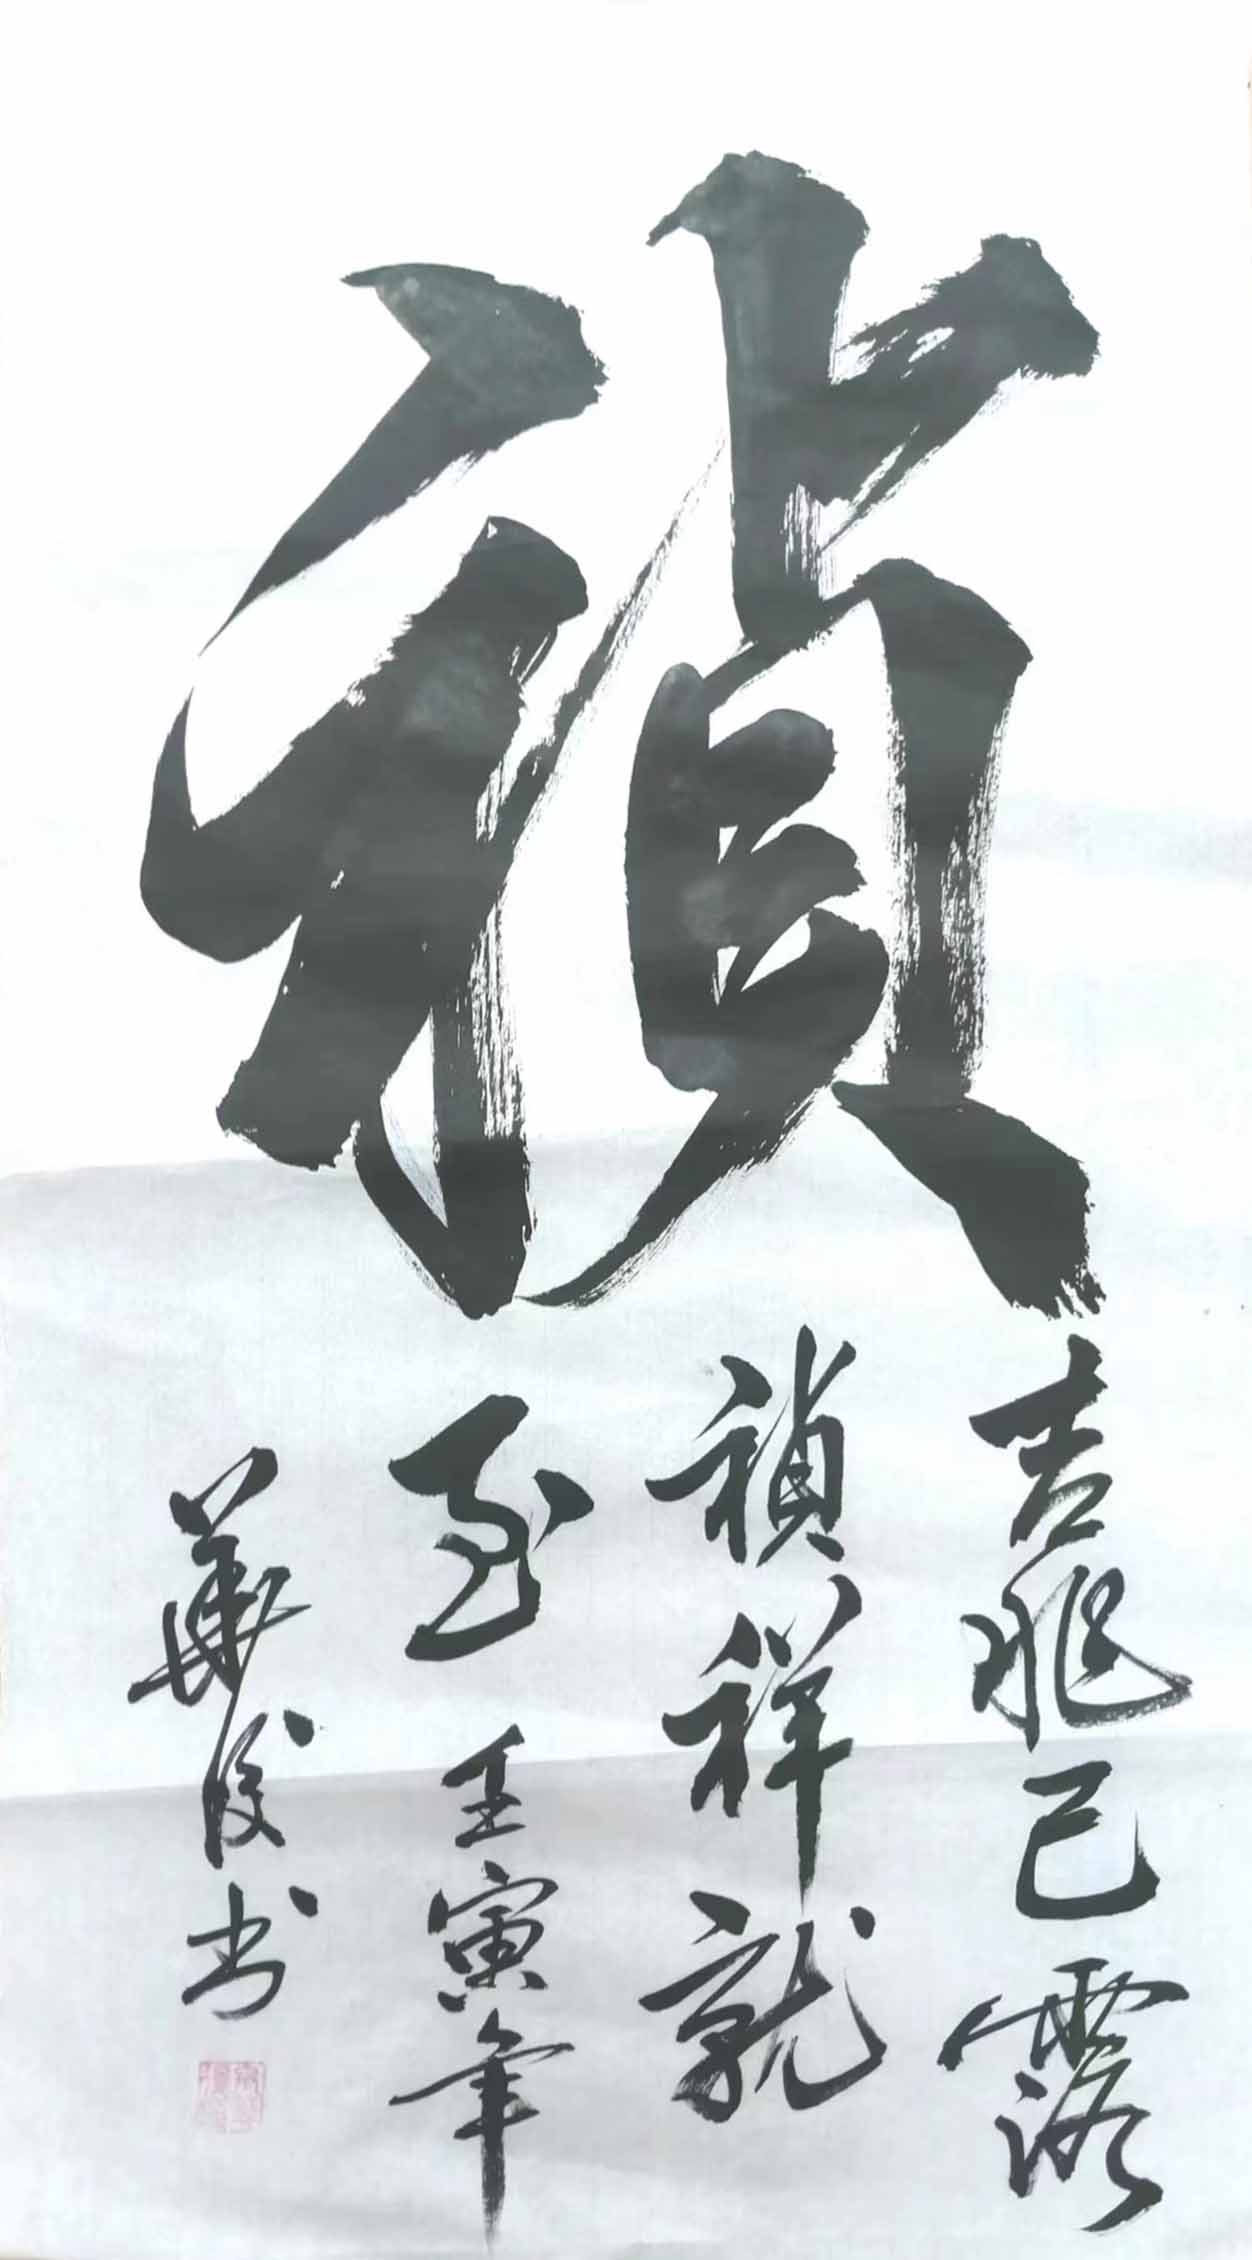 禎
吉兆已露
禎祥就
至 壬寅年
華俊书